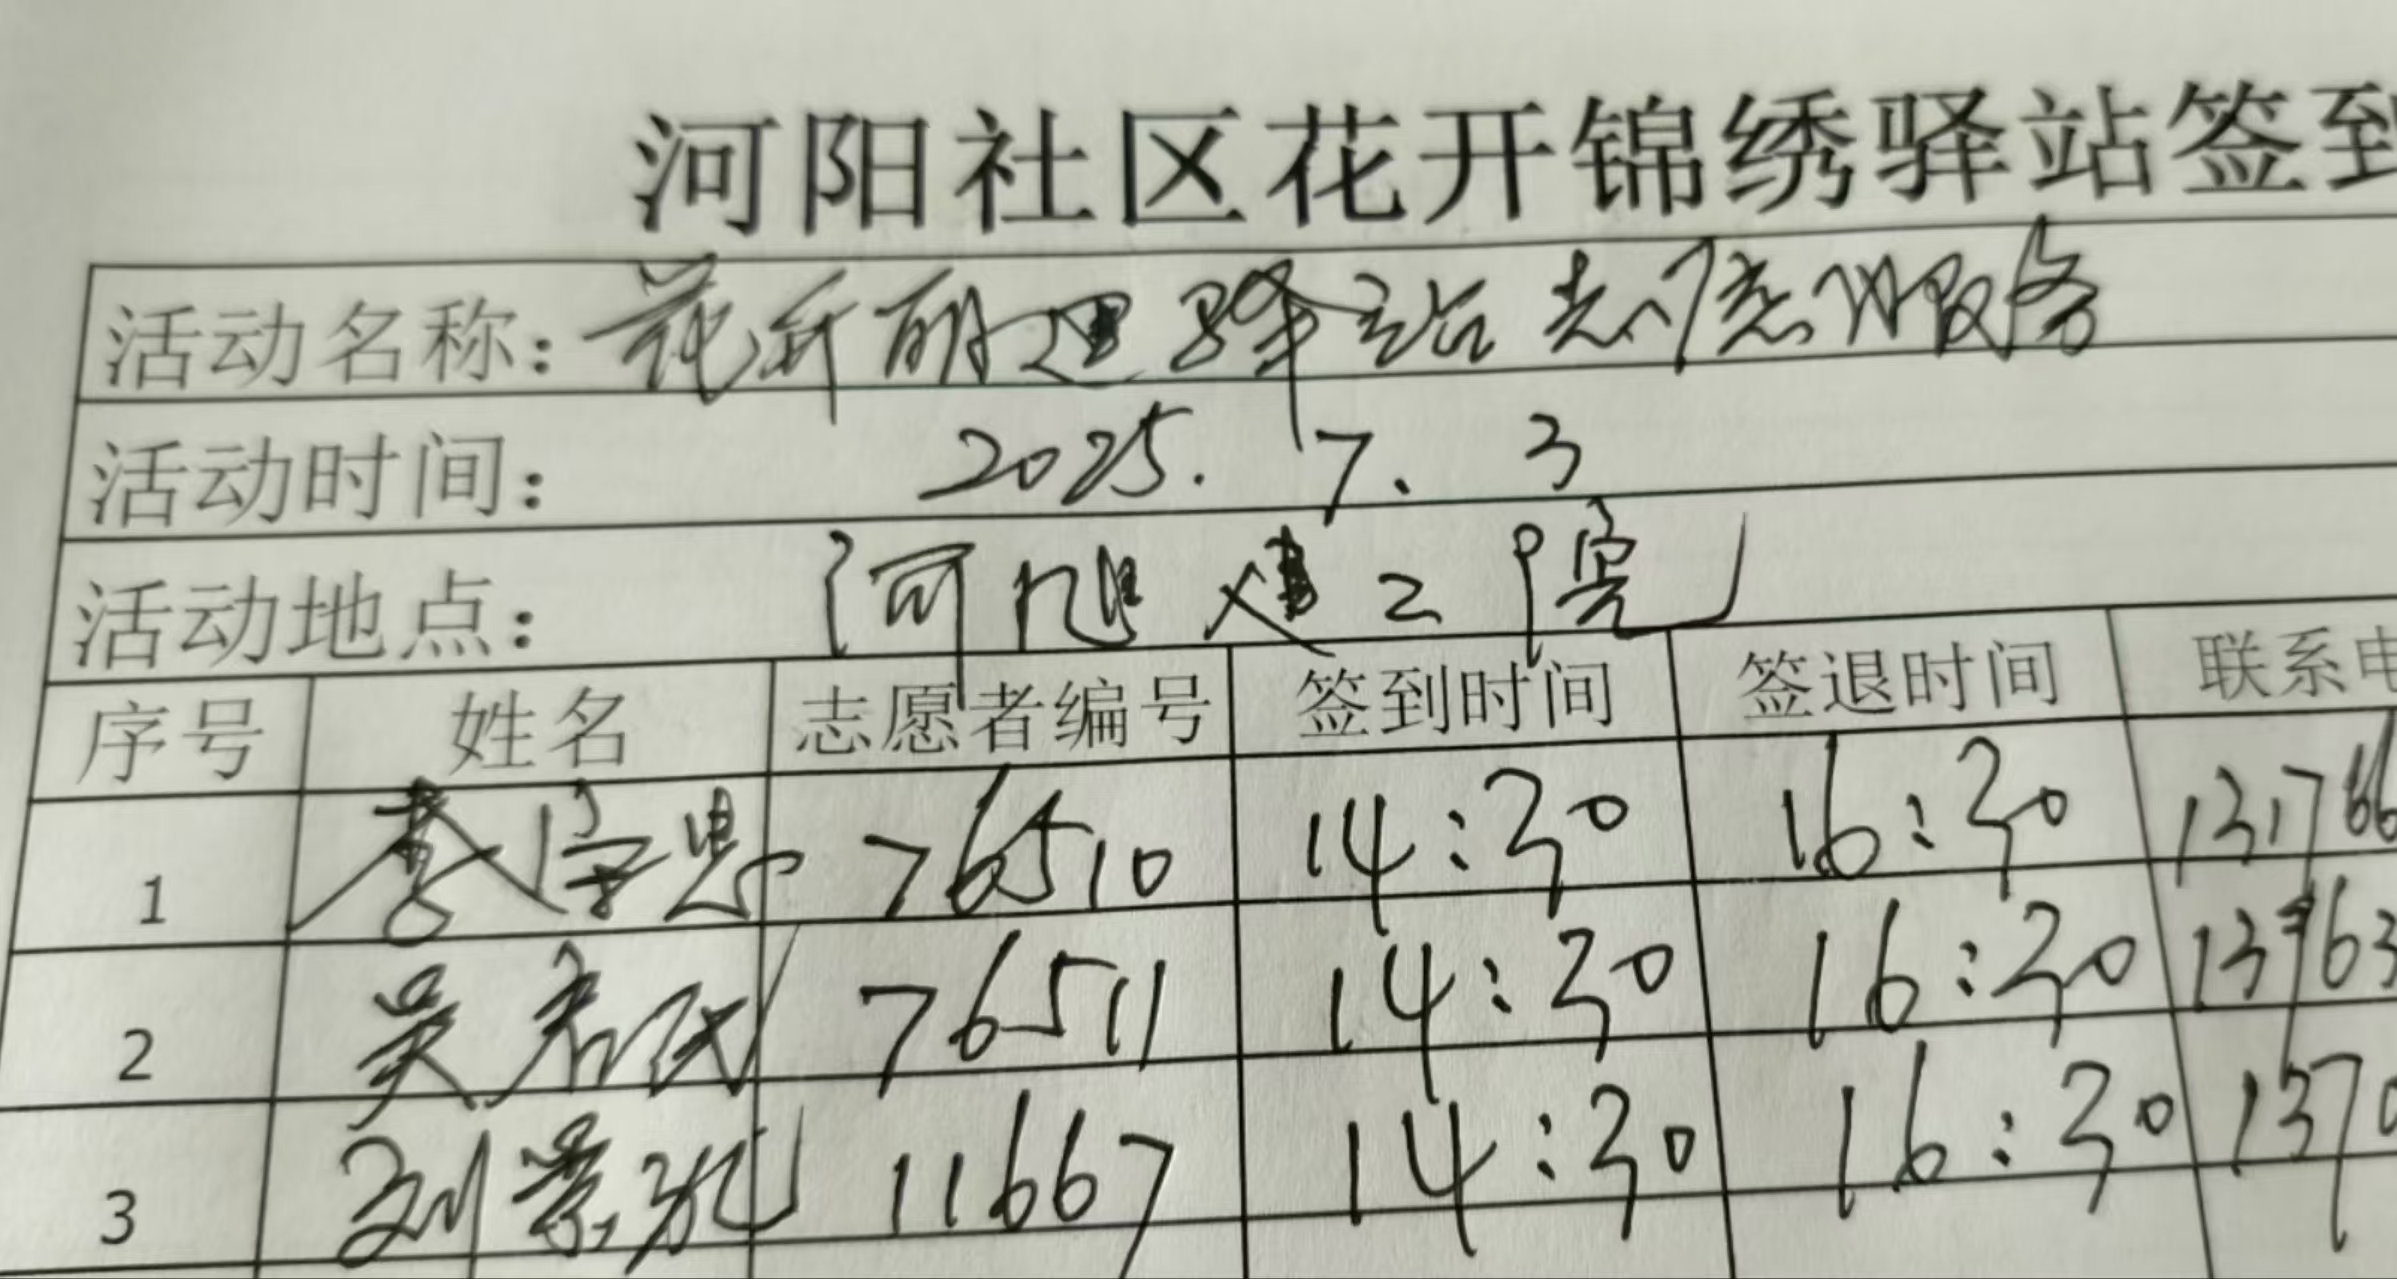 河阳社区花开锦绣驿站签到
活动名称：花开 驿站志愿服务
活动时间：2025.7.3
活动地点：河 二院
序号 姓名 志愿者编号 签到时间 签退时间 联系电
1 76510 14:30 16:30 131766
2 吴 76511 14:30 16:30 13963
3 刘景 11667 14:30 16:30 1370